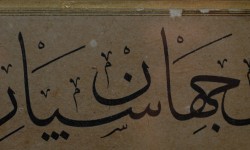 جهان سیار